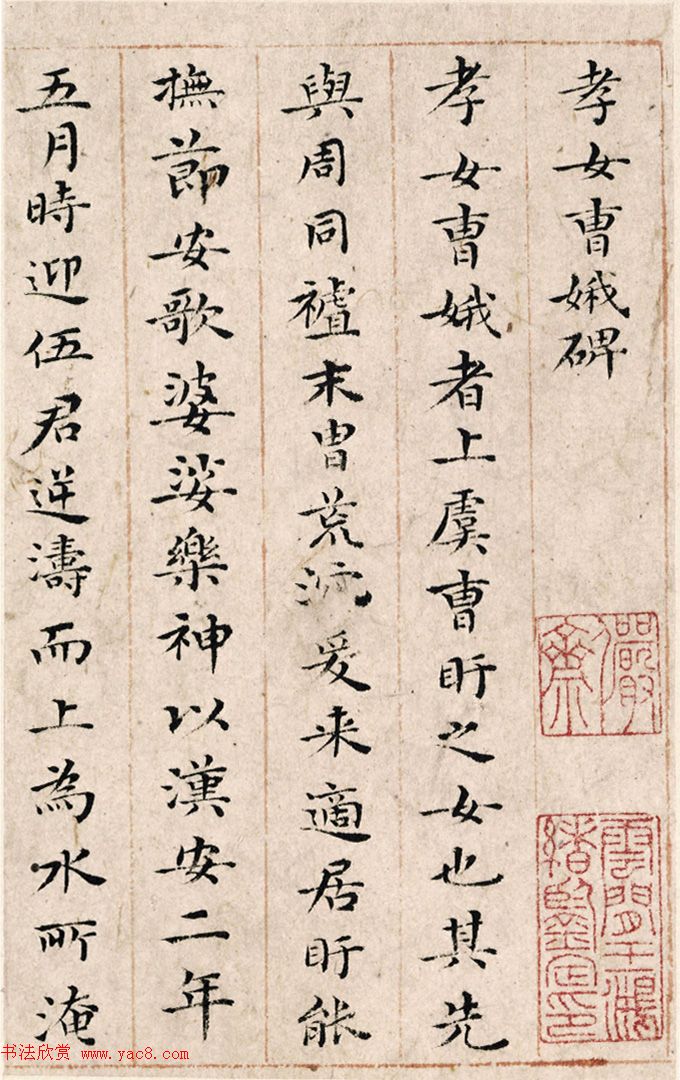 孝女曹娥碑
孝女曹娥者上虞曹盱之女也其先
與周同末胄荒沉爰来適居盱能
撫節安歌婆娑樂神以漢安二年
五月時迎伍君逆濤而上為水所淹
儼齋
雲間王鴻緒鑒定印
书法欣赏 www.yac8.com